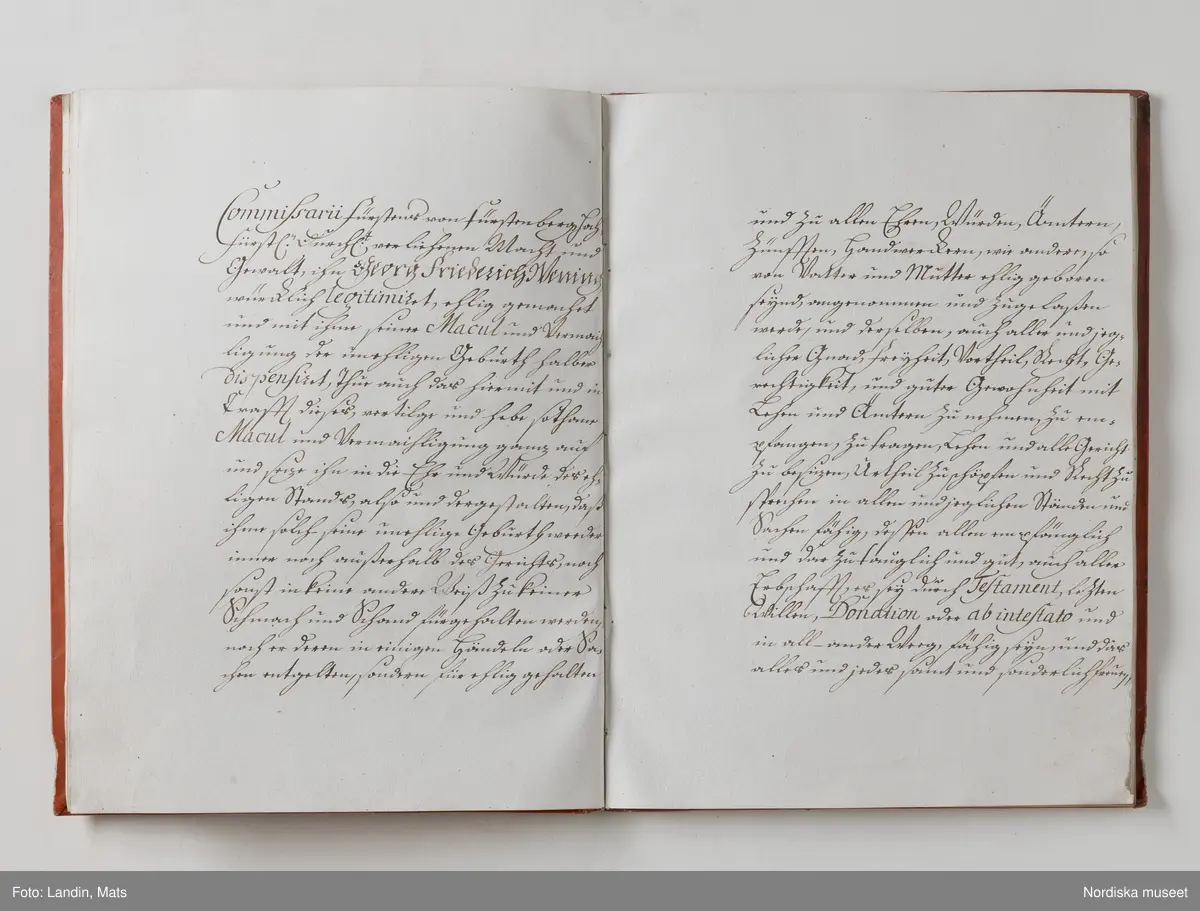 Commissarii Fürstens von Fürstenberg Hoch
fürstl. Durchl. verliehenen Macht und
Gewalt, ihn Georg Friederich Wening
würcklich legitimiret, ehlig gemachet
und mit ihme seiner Macul und Vermai-
ligung der unehligen Gebürth halber
dispensiret, Thue auch das hiermit und in
Crafft dieses, vertilge und hebe sothane
Macul und Vermaihligung gantz auf
und seze ihn in die Ehr und Würde des eh-
ligen Stands, also und dergestalten, daß
ihme solch seine unehlige Gebürth weeder
inner noch außerhalb des Gerichts, noch
sonst in keine andere Weiß zu keiner
Schmach und Schand fürgehalten werden,
noch er deren in einigen Händeln oder Sa-
chen entgelten, sondern für ehlig gehalten
und zu allen Ehren, Würden, Ämtern,
Zünfften, Handwerckern, wie andere, so
von Vatter und Mutter ehlig geboren
seynd, angenommen und zugelaßen
werde, und derselben, auch aller und jeg-
licher Gnad, Freyheit, Vortheil, Recht, Ge-
rechtigkeit, und guter Gewohnheit mit
Lehen und Ämtern zu nehmen, zu em-
pfangen, zu tragen, Lehen und alle Gericht
zu besizen, Urtheil zu schöpfen und Recht zu
sprechen in allen und jeglichen Ständen und
Sachen fähig, deßen allen empfänglich
und darzu tauglich und gut, auch aller
Erbschafft, es sey durch Testament, lezten
Willen, Donation oder ab intestato und
in all-ander Weeg, fähig seyn, und das
alles und jedes samt und sonderlich
Foto: Landin, Mats
Nordiska museet